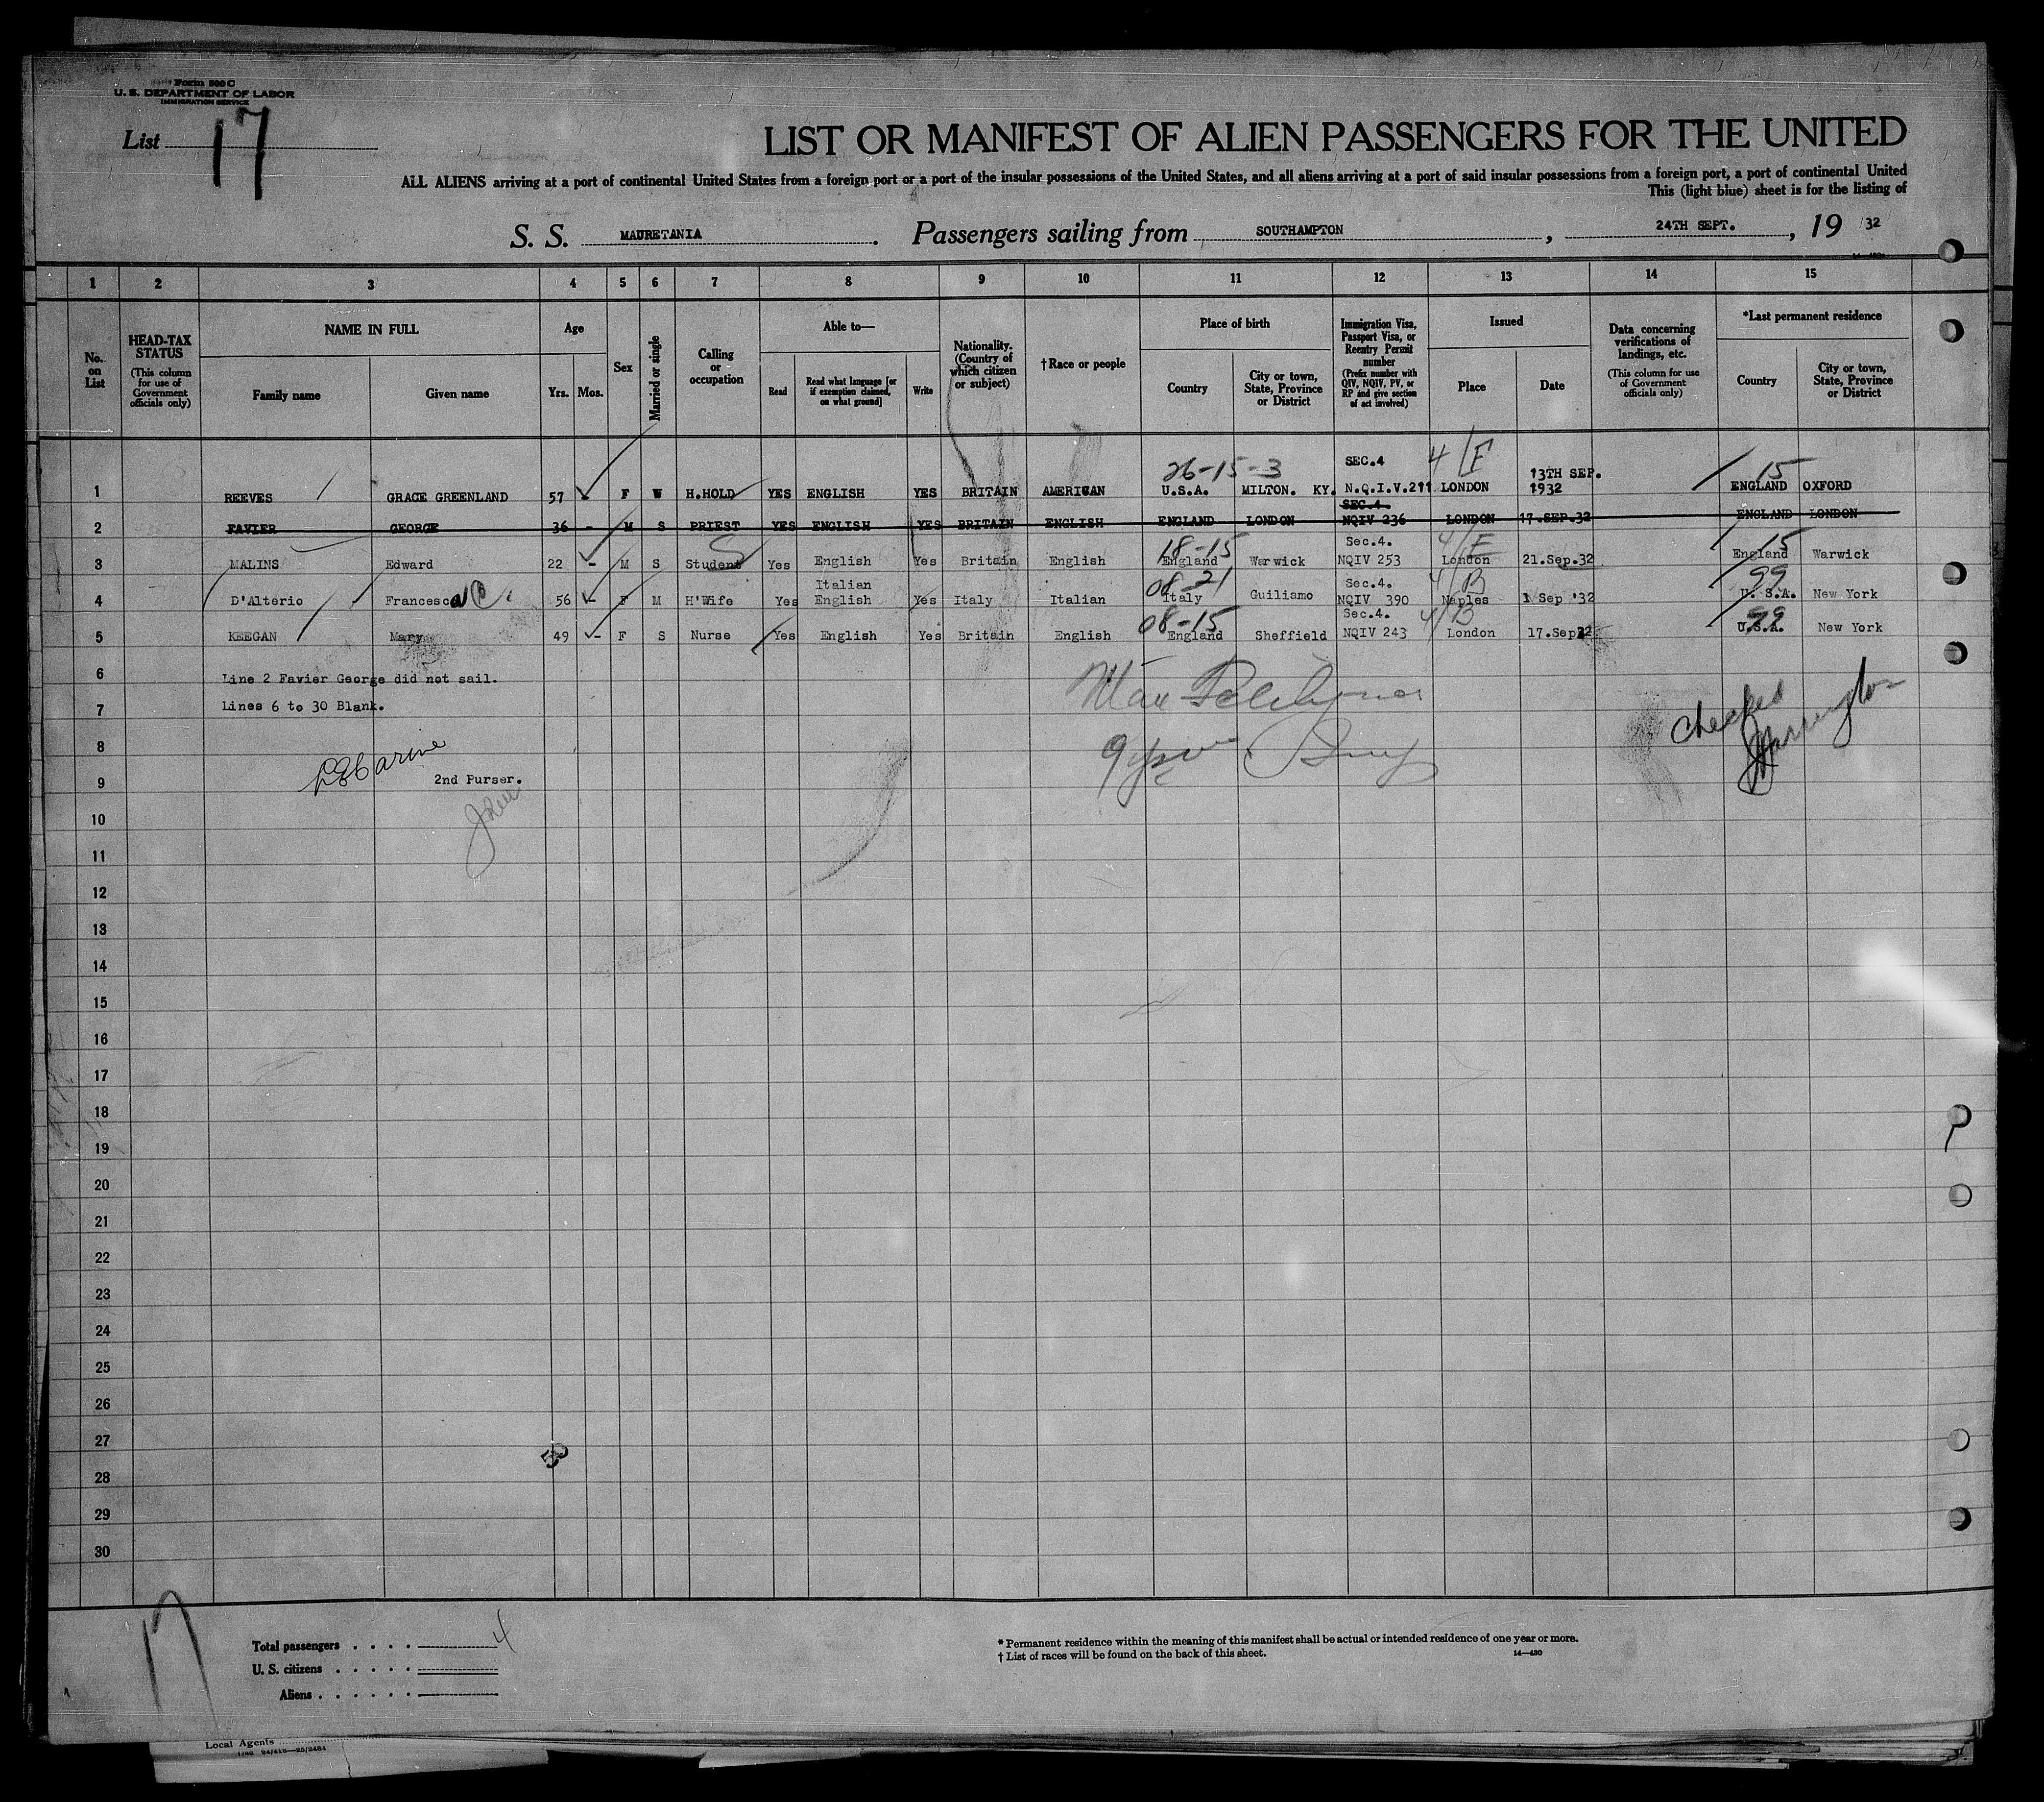 Form 500 C
U. S. DEPARTMENT OF LABOR
IMMIGRATION SERVICE
List 17
LIST OR MANIFEST OF ALIEN PASSENGERS FOR THE UNITED
ALL ALIENS arriving at a port of continental United States from a foreign port or a port of the insular possessions of the United States, and all aliens arriving at a port of said insular possessions from a foreign port, a port of continental United
This (light blue) sheet is for the listing of
S. S. MAURETANIA. Passengers sailing from SOUTHAMPTON, 24TH SEPT., 19 32
1 2 3 4 5 6 7 8 9 10 11 12 13 14 15
No. on List
HEAD-TAX STATUS (This column for use of Government officials only)
NAME IN FULL
Family name
Given name
Age
Yrs. Mos.
Sex
Married or single
Calling or occupation
Able to—
Read
Read what language [or if exemption claimed, on what ground]
Write
Nationality. (Country of which citizen or subject)
†Race or people
Place of birth
Country
City or town, State, Province or District
Immigration Visa, Passport Visa, or Reentry Permit number (Prefix number with QIV, NQIV, PV, or RP and give section of act involved)
Issued
Place
Date
Data concerning verifications of landings, etc. (This column for use of Government officials only)
*Last permanent residence
Country
City or town, State, Province or District
26-15-3 SEC.4 4/F 13TH SEP. 15
1 REEVES GRACE GREENLAND 57 F W H.HOLD YES ENGLISH YES BRITAIN AMERICAN U.S.A. MILTON. KY. N.Q.I.V.211 LONDON 1932 ENGLAND OXFORD
SEC.4.
2 FAVIER GEORGE 36 - M S PRIEST YES ENGLISH YES BRITAIN ENGLISH ENGLAND LONDON NQIV 236 LONDON 17.SEP.32 ENGLAND LONDON
18-15 Sec.4. 4/F 15
3 MALINS Edward 22 - M S Student Yes English Yes Britain English England Warwick NQIV 253 London 21.Sep.32 England Warwick
Italian 08-21 Sec.4. 4/B 99
4 D'Alterio Francesca 56 - F M H'Wife Yes English Yes Italy Italian Italy Guiliamo NQIV 390 Naples 1 Sep '32 U.S.A. New York
08-15 Sec.4. 4/B 99
5 KEEGAN Mary 49 - F S Nurse Yes English Yes Britain English England Sheffield NQIV 243 London 17.Sep32 U.S.A. New York
6 Line 2 Favier George did not sail.
7 Lines 6 to 30 Blank.
Checked
8
9 2nd Purser.
10
11
12
13
14
15
16
17
18
19
20
21
22
23
24
25
26
27
28
29
30
17
Total passengers . . . . 4
U. S. citizens . . . . .
Aliens . . . . . .
* Permanent residence within the meaning of this manifest shall be actual or intended residence of one year or more.
† List of races will be found on the back of this sheet.
14—430
Local Agents